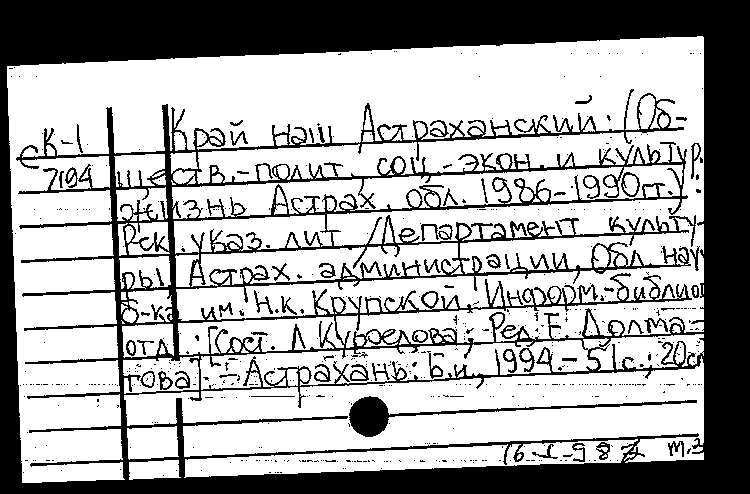 К-1 Край наш Астраханский: (Об-
7194 ществ.-полит., соц.-экон. и культур.
жизнь Астрах. обл. 1986-1990гг.):
Рек. указ. лит. /Департамент культу-
ры Астрах. администрации, Обл. науч
б-ка им. Н.К. Крупской, Информ.-библиог
отд.; [Сост. Л.Куроедова; Ред. Е. Долма-
това]. - Астрахань: Б.и., 1994.- 51с.; 20см
16-I-98